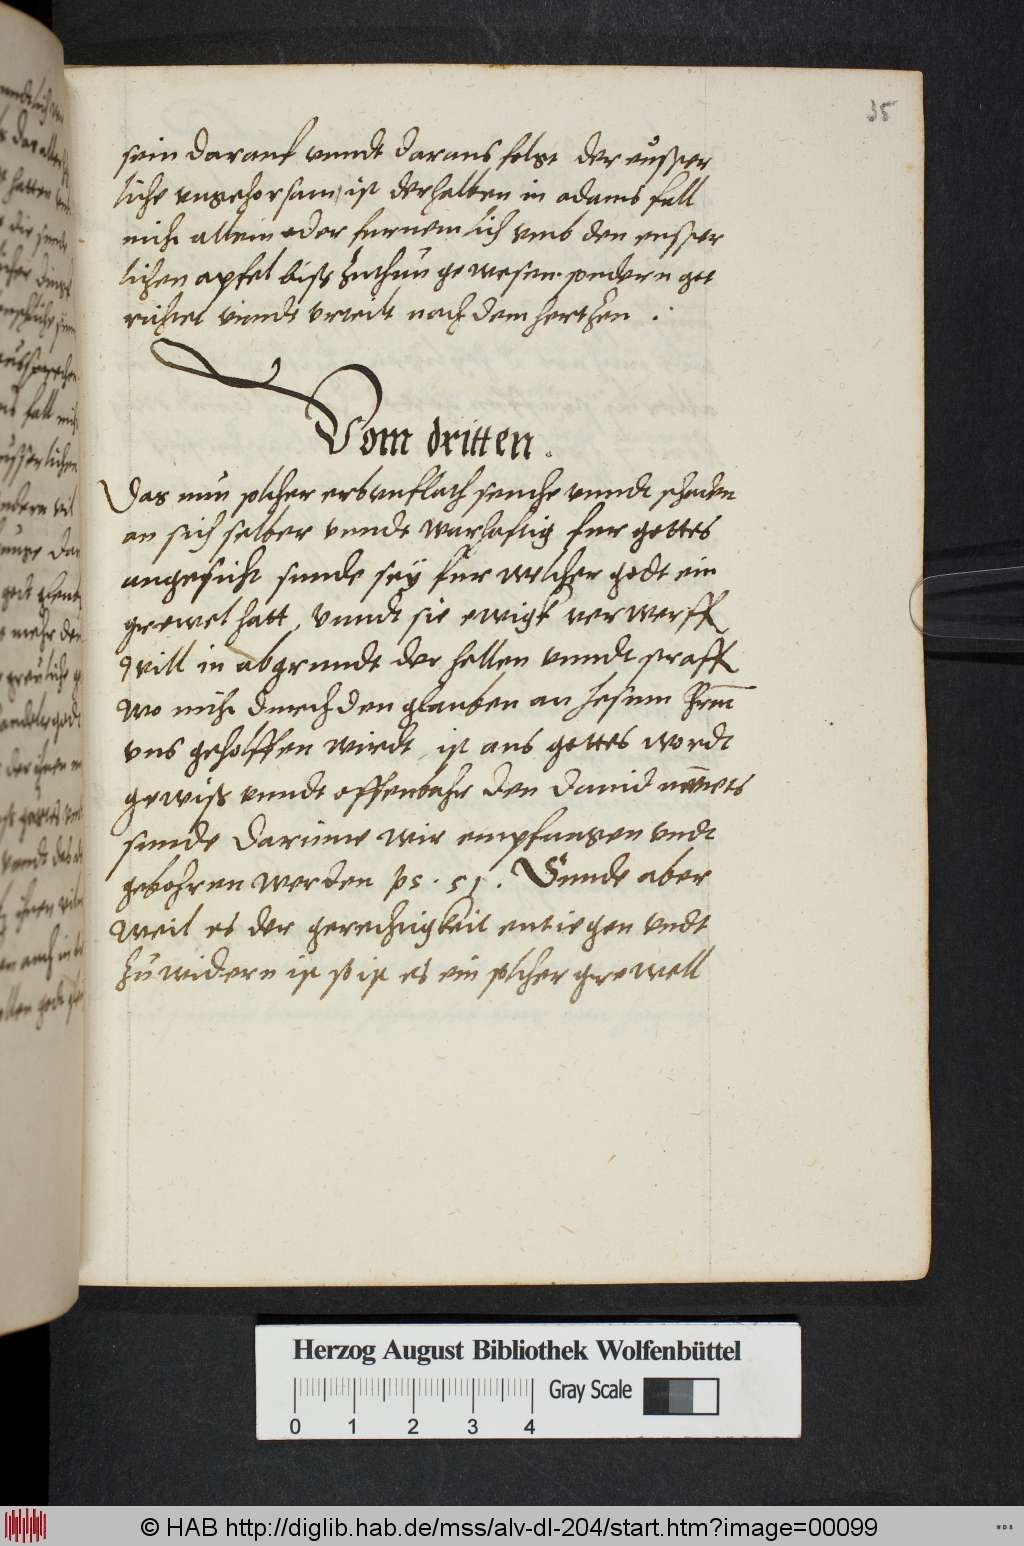 35
sein darauf vnndt daraus folgt der eusser
liche vngehorsam, ist derhalben in adams fall
nicht allein oder furnemlich vmb den eusser
lichen apfel biss zuthun gewesen. sondern got
richtet vnndt vrteilt nach dem hertzen .
Vom dritten.
Das nun solcher erbvnflath seuche vnndt schaden
an sich selber vnndt warhaftig fur gottes
angesicht sunde seÿ fur welcher godt ein
grewel hatt, vnndt sie ewigk verwerff
will in abgrundt der hellen vnndt straff
wo nicht durch den glauben an Jhesum
vns geholffen wirdt, ist aus gottes wordt
gewiss vnndt offenbahr den Dauid
sunde darinne wir empfangen vndt
gebohren werden ps. 51. Sunde aber
weil es der gerechtigkeit entiegen vndt
zuwidern ist so ist es ein solcher grewell
Herzog August Bibliothek Wolfenbüttel
Gray Scale
0 1 2 3 4
© HAB http://diglib.hab.de/mss/alv-dl-204/start.htm?image=00099